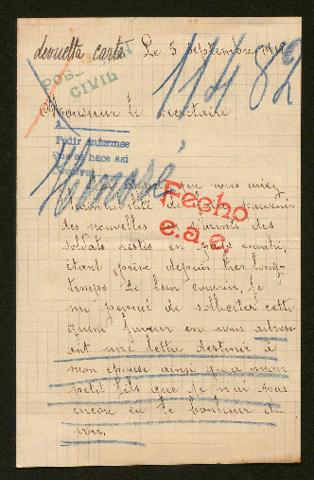 devuelta carta Le 5 septembre 191
POBLACION
CIVIL
11482
Monsieur le secrétaire
A
Pedir informes
Que se hace asi
Fecho
e.a.e.
que vous aviez
des nouvelles
soldats restés en pays envahi,
étant privé depuis très long-
temps de leur courrier, je
me permet de solliciter cette
faveur en vous adress
ant une lettre destinée à
mon épouse ainsi qu'a mon
petit fils que je n'ai pas
encore eu le bonheur de
voir.